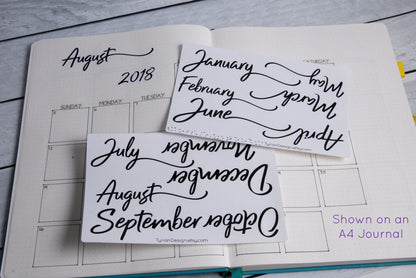 August
2018
SUNDAY MONDAY TUESDAY
SATURDAY
January May
February March
June April
TynanDesign.etsy.com
July November
December
August
September October
TynanDesign.etsy.com
Shown on an
A4 Journal